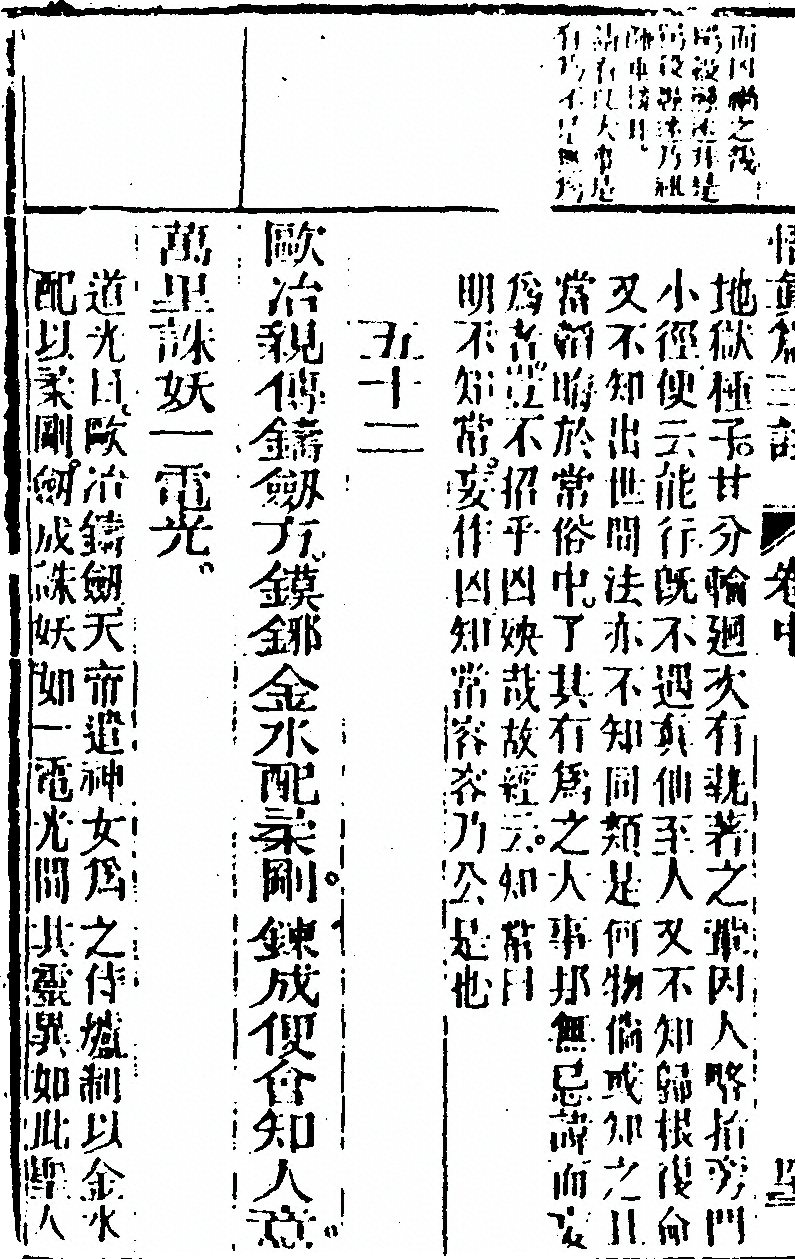 悟真篇三註 卷中
而因噎之哉
師車接日
話有以大事是
有乃不是無為
地獄種子甘分輪廻次有執著之輩因人畧指旁門
小徑便云能行旣不遇真仙至人又不知歸根復命
又不知出世間法亦不知同類是何物倘或知之且
當韜晦於常俗中了其有為之大事却無忌諱而妄
為者豈不招乎凶殃哉故經云知常曰
明不知常妄作凶知常容容乃公是也
五十二
歐冶親傳鑄劔方鏌鋣金水配柔剛鍊成便會知人意
萬里誅妖一電光
道光曰歐冶鑄劔天帝遣神女為之侍爐制以金水
配以柔剛劔成誅妖如一電光間其靈異如此聖人